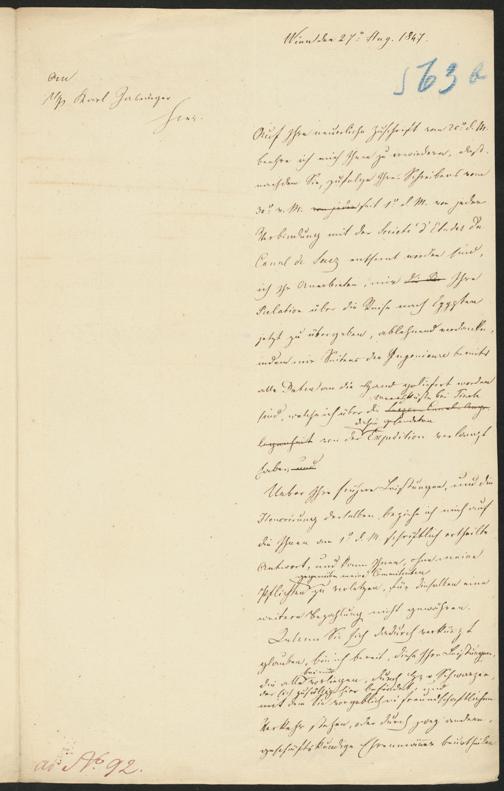 Wien den 27. Aug. 1847.
563 b
An
Hrn Karl Jasnüger
hier.
Auf Ihre neuerliche Zuschrift vom 20. d. M.
beehre ich mich Ihnen zu erwiedern, daß,
nachdem Sie, zufolge Ihres Schreibens vom
30. v. M. von jeder seit 1. d. M. von jeder
Verbindung mit der Société d'Etudes du
Canal de Suez entfernt worden sind,
ich Ihr Anerbieten, mir die Ihre
Relation über die Reise nach Egypten
jetzt zu übergeben, ablehnend verdanke,
indem mir Seitens der Ingenieure bereits
alle Daten an die Hand geliefert worden
sind, welche ich über die
dahin gesendeten
von der Expedition verlangt
habe, und
Ueber Ihre frühern Leistungen, und die
Honorirung derselben beziehe ich mich auf
die Ihnen am 1. d. M. schriftlich ertheilte
Antwort, und kann Ihnen, ohne meine
gegenüber meiner Committenten
Pflichten zu verletzen, für dieselben eine
weitere Bezahlung nicht gewähren.
Indem Sie sich dadurch verkürzt
glauben, bin ich bereit, diese Ihre Leistungen,
die alle vorliegen, durch Hr v Schwarzer,
der sich zufällig hier befindet, und
mit dem Sie vorgeblich in freundschaftlichem
Verkehr stehen, oder durch zwey andere,
geschäftskundige Ehrenmänner beurtheilen
ad No 92.